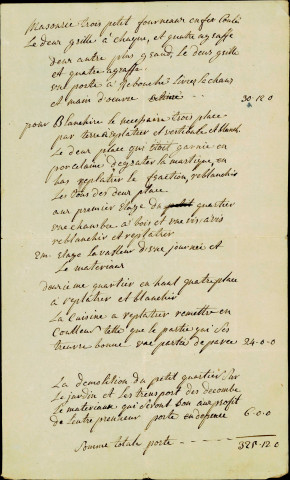 Masonrie trois petit fourneaux en fer coulé
Le deux grille à chaque, et quatre agraffe
deux autre plus grand, Le deux grille
et quatre agraffe.
une porte à Rebouché Livrer Le chaux
et main d'oeuvre Estimé — 30-12-0
pour Blanchire Le necessaire trois place
par terre Replatrer et vestibule et blanch.
Le deux place qui etoit garnie en
porcelaine degarter la
bas replatrer le reblanchir
Les tous des deux place
aux premier Etage du petit quartier
une chambre à bois et une vis à vis
reblanchir et replatrer
2m. Etage La valleur d'une journée et
Le materiaux
douzieme quartier en haut quatre place
à replatrer et blanchir
La Cuisine a replatrer remettre en
Coulleur tette que la partie qui s'est
trouvée bonne une partie de pavée 24-0-0
La demolition du petit quartier sur
Le jardin et Les transport des decombe
Le materiaux qui seront bon au profit
de L'entrepreneur porte en depence 6-0-0
Somme totale porte — 325-12-0